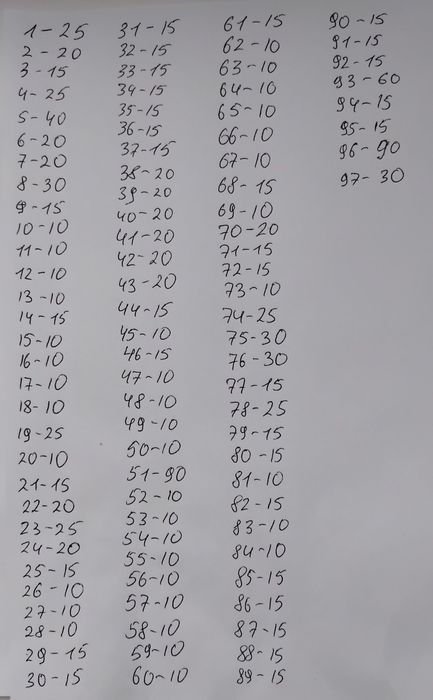 1-25
2-20
3-15
4-25
5-40
6-20
7-20
8-30
9-15
10-10
11-10
12-10
13-10
14-15
15-10
16-10
17-10
18-10
19-25
20-10
21-15
22-20
23-25
24-20
25-15
26-10
27-10
28-10
29-15
30-15
31-15
32-15
33-15
34-15
35-15
36-15
37-15
38-20
39-20
40-20
41-20
42-20
43-20
44-15
45-10
46-15
47-10
48-10
49-10
50-10
51-90
52-10
53-10
54-10
55-10
56-10
57-10
58-10
59-10
60-10
61-15
62-10
63-10
64-10
65-10
66-10
67-10
68-15
69-10
70-20
71-15
72-15
73-10
74-25
75-30
76-30
77-15
78-25
79-15
80-15
81-10
82-15
83-10
84-10
85-15
86-15
87-15
88-15
89-15
90-15
91-15
92-15
93-60
94-15
95-15
96-90
97-30